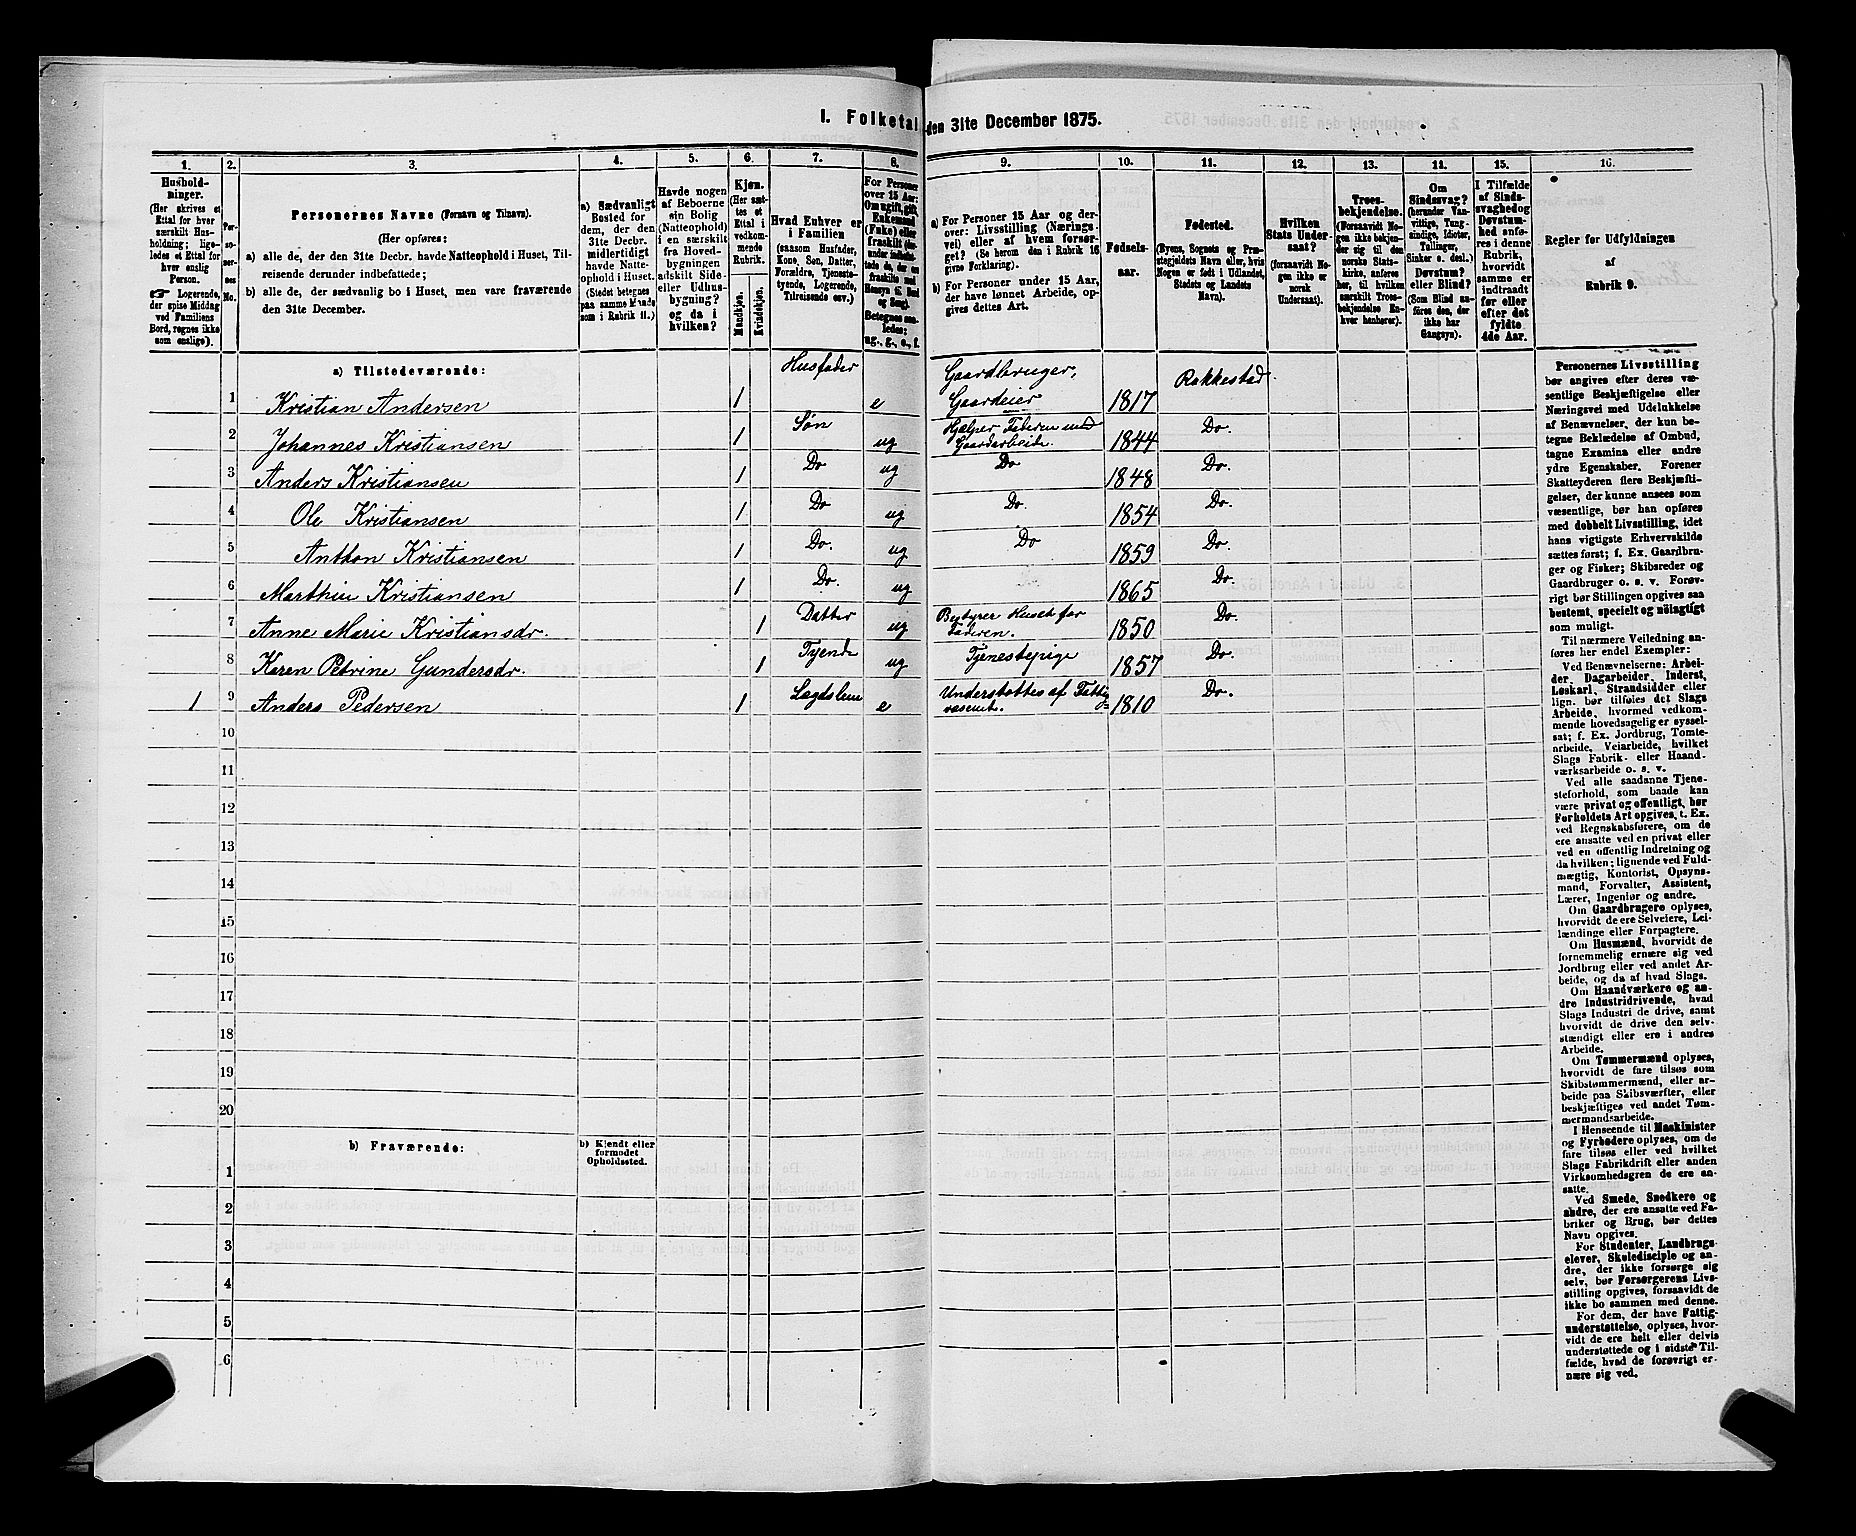 I. Folketal den 31te December 1875.
1.
2.
3.
4.
5.
6.
7.
8.
9.
10.
11.
12.
13.
14.
15.
16.
Husholdninger.
(Her skrives et
Ettal for hver
særskilt Husholdning; ligeledes
et Ettal for
hver enslig
Person.
☞ Logerende,
der spise Middag
ved Familiens
Bord, regnes ikke
som enslige).
Personernes No.
Personernes Navne (Fornavn og Tilnavn).
(Her opføres:
a) alle de, der den 31te Decbr. havde Natteophold i Huset, Tilreisende derunder indbefattede;
b) alle de, der sædvanlig bo i Huset, men vare fraværende
den 31te December.
a) Sædvanligt
Bosted for
dem, der den
31te Decbr.
midlertidigt
havde Natteophold
i Huset.
(Stedet betegnes
paa samme Maade
som i Rubrik 11.)
Havde nogen
af Beboerne
sin Bolig
(Natteophold)
i en særskilt
fra Hovedbygningen
adskilt Side-
eller Udhusbygning?
og da i
hvilken?
Kjøn.
(Her sættes
et
Ettal i
vedkommende
Rubrik.
Mandkjøn.
Kvindekjøn.
Hvad Enhver er
i Familien
(saasom Husfader,
Kone, Søn, Datter,
Forældre, Tjenestetyende,
Logerende,
Tilreisende osv.)
For Personer
over 15 Aar:
Om ugift, gift,
Enkemand
(Enke) eller
fraskilt
Betegnes saaledes:
ug., g., e., f.
a) For Personer 15 Aar og derover: Livsstilling (Næringsvei)
eller af hvem forsørget?
(Se herom den i Rubrik 16
givne Forklaring).
b) For Personer under 15 Aar,
der have lønnet Arbeide, opgives
dettes Art.
Fødselsaar.
Fødested.
(Byens, Sognets og Præstegjeldets
Navn eller, hvis
Nogen er født i Udlandet,
Stedets og Landets
Navn).
Hvilken
Stats Undersaat?
(forsaavidt Nogen
ikke er
norsk
Undersaat).
Troesbekjendelse.
(Forsaavidt Nogen
ikke bekjender
sig til den
norske Statskirke,
anføres
her, til hvilken
særskilt Troesbekjendelse
Enhver
henhører).
Om
Sindssvag?
(herunder Vanvittige,
Tungsindige,
Idioter,
Tullinger,
Sinker o. desl.)
Døvstum?
eller Blind?
(Som Blind anføres
den, der
ikke har
Gangsyn).
I Tilfælde
af Sindssvaghed
og
Døvstumhed
anføres
i denne
Rubrik,
hvorvidt
samme er
indtraadt
før eller
efter det
fyldte
4de Aar.
Regler for Udfyldningen
af
Rubrik 9.
a) Tilstedeværende:
1 Kristian Andersen 1 Husfader e Gaardbruger, Gaardeier 1817 Rakkestad
2 Johannes Kristiansen 1 Søn ug Hjælper Faderen med Gaardarbeide. 1844 Do.
3 Anders Kristiansen 1 Do ug Do 1848 Do.
4 Ole Kristiansen 1 Do ug Do. 1854 Do.
5 Anthon Kristiansen 1 Do. ug Do 1859 Do.
6 Marthin Kristiansen 1 Do. ug 1865 Do.
7 Anne Marie Kristiansdr. 1 Datter ug Bestyrer Huset for Faderen. 1850 Do.
8 Karen Petrine Gundersdr. 1 Tyende ug Tjenestepige 1857 Do.
1 9 Anders Pedersen 1 Lægdslem e Understøttes af Fattigvæsenet. 1810 Do.
10
11
12
13
14
15
16
17
18
19
20
b) Fraværende:
b) Kjendt eller
formodet
Opholdssted.
1
2
3
4
5
6
Personernes Livsstilling
bør angives efter deres væsentlige
Beskjæftigelse eller
Næringsvei med Udelukkelse
af Benævnelser, der kun betegne
Beklædelse af Ombud,
tagne Examina eller andre
ydre Egenskaber. Forener
Skatteyderen flere Beskjæftigelser,
der kunne ansees som
væsentlige, bør han opføres
med dobbelt Livsstilling, idet
hans vigtigste Erhvervskilde
sættes først; f. Ex. Gaardbruger
og Fisker; Skibsreder og
Gaardbruger o. s. v. Forøvrigt
bør Stillingen opgives saa
bestemt, specielt og nöiagtigt
som muligt.
Til nærmere Veiledning anføres
her endel Exempler:
Ved Benævnelserne: Arbeider,
Dagarbeider, Inderst,
Løskarl, Strandsidder eller
lign. bør tilføies det Slags
Arbeide, hvormed vedkommende
hovedsagelig er sysselsat;
f. Ex. Jordbrug, Tomtearbeide,
Veiarbeide, hvilket
Slags Fabrik- eller Haandværksarbeide
o. s. v.
Ved alle saadanne Tjenesteforhold,
som baade kan
være privat og offentligt, bør
Forholdets Art opgives, t. Ex.
ved Regnskabsførere, om de
ere ansatte ved en privat eller
ved en offentlig Indretning og
da hvilken; lignende ved Fuldmægtig,
Kontorist, Opsynsmand,
Forvalter, Assistent,
Lærer, Ingeniør og andre.
Om Gaardbrugere oplyses,
hvorvidt de ere Selveiere, Leilændinge
eller Forpagtere.
Om Husmænd, hvorvidt de
fornemmelig ernære sig ved
Jordbrug eller ved andet Arbeide,
og da af hvad Slags.
Om Haandværkere og andre
Industridrivende, hvad
Slags Industri de drive, samt
hvorvidt de drive den selvstændigt
eller ere i andres
Arbeide.
Om Tømmermænd oplyses,
hvorvidt de fare tilsøs som
Skibstømmermænd, eller arbeide
paa Skibsværfter, eller
beskjæftiges ved andet Tømmermandsarbeide.
I Henseende til Maskinister
og Fyrbødere oplyses, om de
fare tilsøs eller ved hvilket
Slags Fabrikdrift eller anden
Virksomhedsgren de ere ansatte.
Ved Smede, Snedkere og
andre, der ere ansatte ved Fabriker
og Brug, bør dettes
Navn opgives.
For Studenter, Landbrugselever,
Skoledisciple og andre,
der ikke forsørge sig
selv, bør Forsørgerens Livsstilling
opgives, forsaavidt de
ikke bo sammen med denne.
For dem, der have Fattigunderstøttelse,
oplyses, hvorvidt
de ere helt eller delvis
understøttede og i sidste Tilfælde,
hvad de forøvrigt ernære
sig ved.